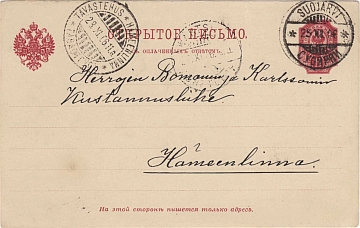 ОТКРЫТОЕ ПИСЬМО.
СЪ ОПЛАЧЕННЫМЪ ОТВѢТОМЪ.
TAVASTEHUS
SUOJÄRVI
Herrojen Boman ja Karlssonin
Kustannusliike
Hämeenlinna.
На этой сторонѣ пишется только адресъ.